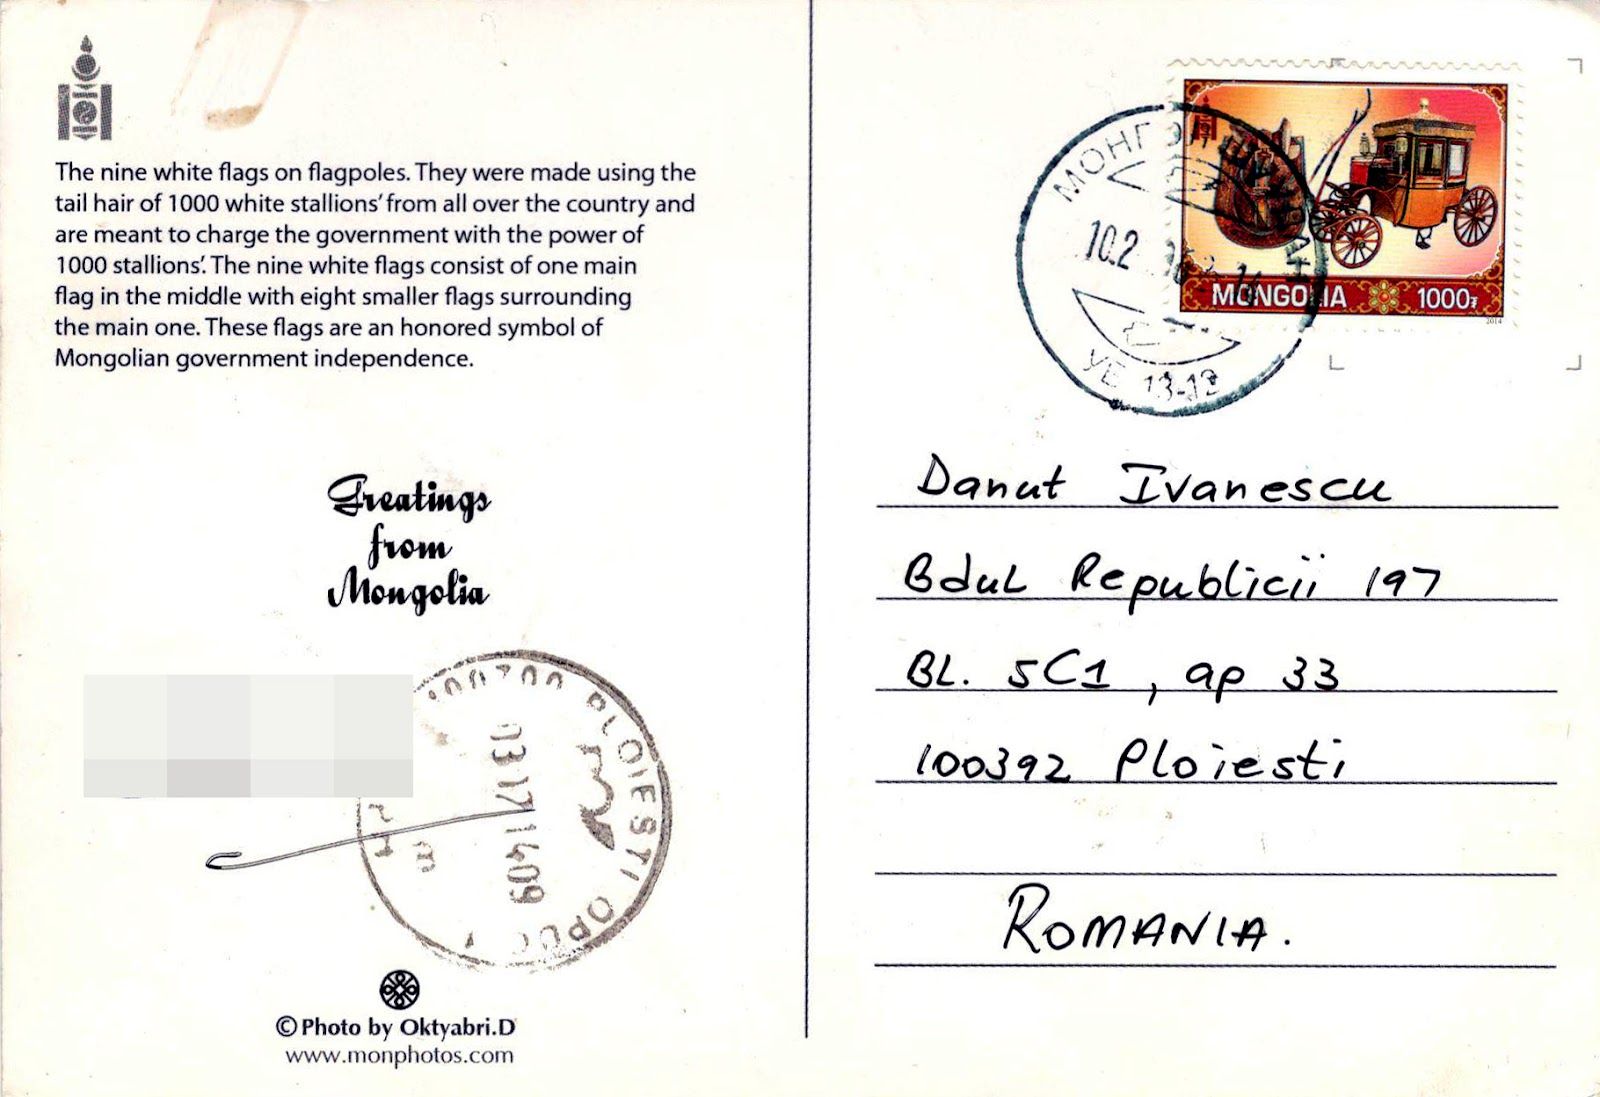 The nine white flags on flagpoles. They were made using the
tail hair of 1000 white stallions' from all over the country and
are meant to charge the government with the power of
1000 stallions'. The nine white flags consist of one main
flag in the middle with eight smaller flags surrounding
the main one. These flags are an honored symbol of
Mongolian government independence.
Greatings
from
Mongolia
PLOIESTI
© Photo by Oktyabri.D
www.monphotos.com
MONGOLIA 1000₮
2014
10.2
УБ 13-12
Danut Ivanescu
Bdul Republicii 197
BL. 5C1, ap 33
100392 Ploiesti
ROMANIA.